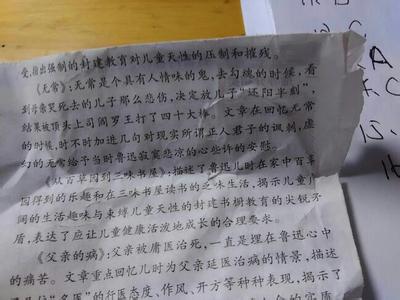 受,指出强制的封建教育对儿童天性的压制和摧残。
《无常》:无常是个具有人情味的鬼,去勾魂的时候,看
到母亲哭死去的儿子那么悲伤,决定放儿子“还阳半刻”,
结果被顶头上司阎罗王打了四十大棒。文章在回忆无常
的时候,时不时加进几句对现实所谓正人君子的讽刺,虚
幻的无常给予当时鲁迅寂寞悲凉的心些许的安慰。
《从百草园到三味书屋》:描述了鲁迅儿时在家中百草
园得到的乐趣和在三味书屋读书的乏味生活,揭示儿童广
阔的生活趣味与束缚儿童天性的封建书塾教育的尖锐矛
盾,表达了应让儿童健康活泼地成长的合理要求。
《父亲的病》:父亲被庸医治死,一直是埋在鲁迅心中
的痛苦。文章重点回忆儿时为父亲延医治病的情景,描述
位“名医”的行医态度、作风、开方等种种表现,揭示了
A
C
15.